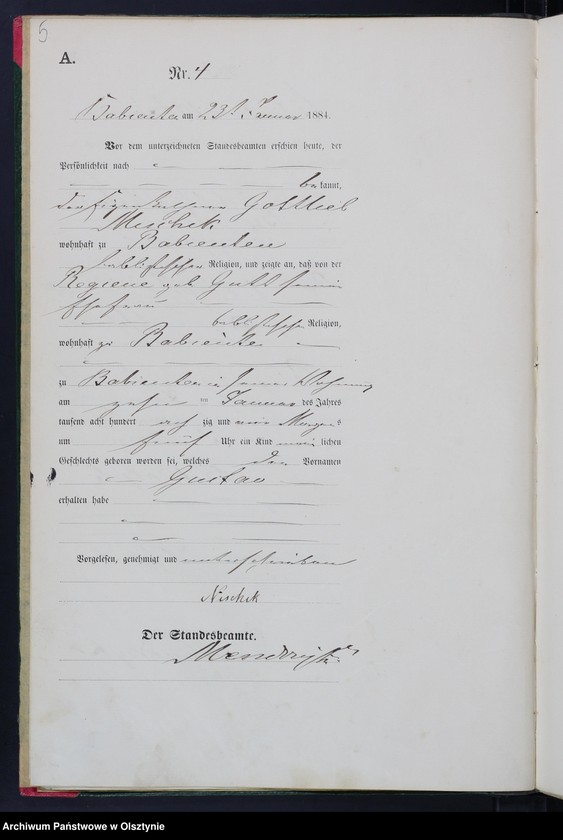 5
A.
Nr. 4
Babienten am 23t Januar 1884.
Vor dem unterzeichneten Standesbeamten erschien heute, der
Persönlichkeit nach
bekannt,
der Gottlieb
wohnhaft zu Babienten
Religion, und zeigte an, daß von der
Regiene geb. Gutt seiner
Ehefrau
Religion,
wohnhaft zu Babienten
zu Babienten in seiner Wohnung
am zehn ten Januar des Jahres
tausend acht hundert acht zig und vier Morgens
um fünf Uhr ein Kind männlichen
Geschlechts geboren worden sei, welches den Vornamen
Gustav
erhalten habe
Vorgelesen, genehmigt und unterschrieben
Der Standesbeamte.
Archiwum Państwowe w Olsztynie